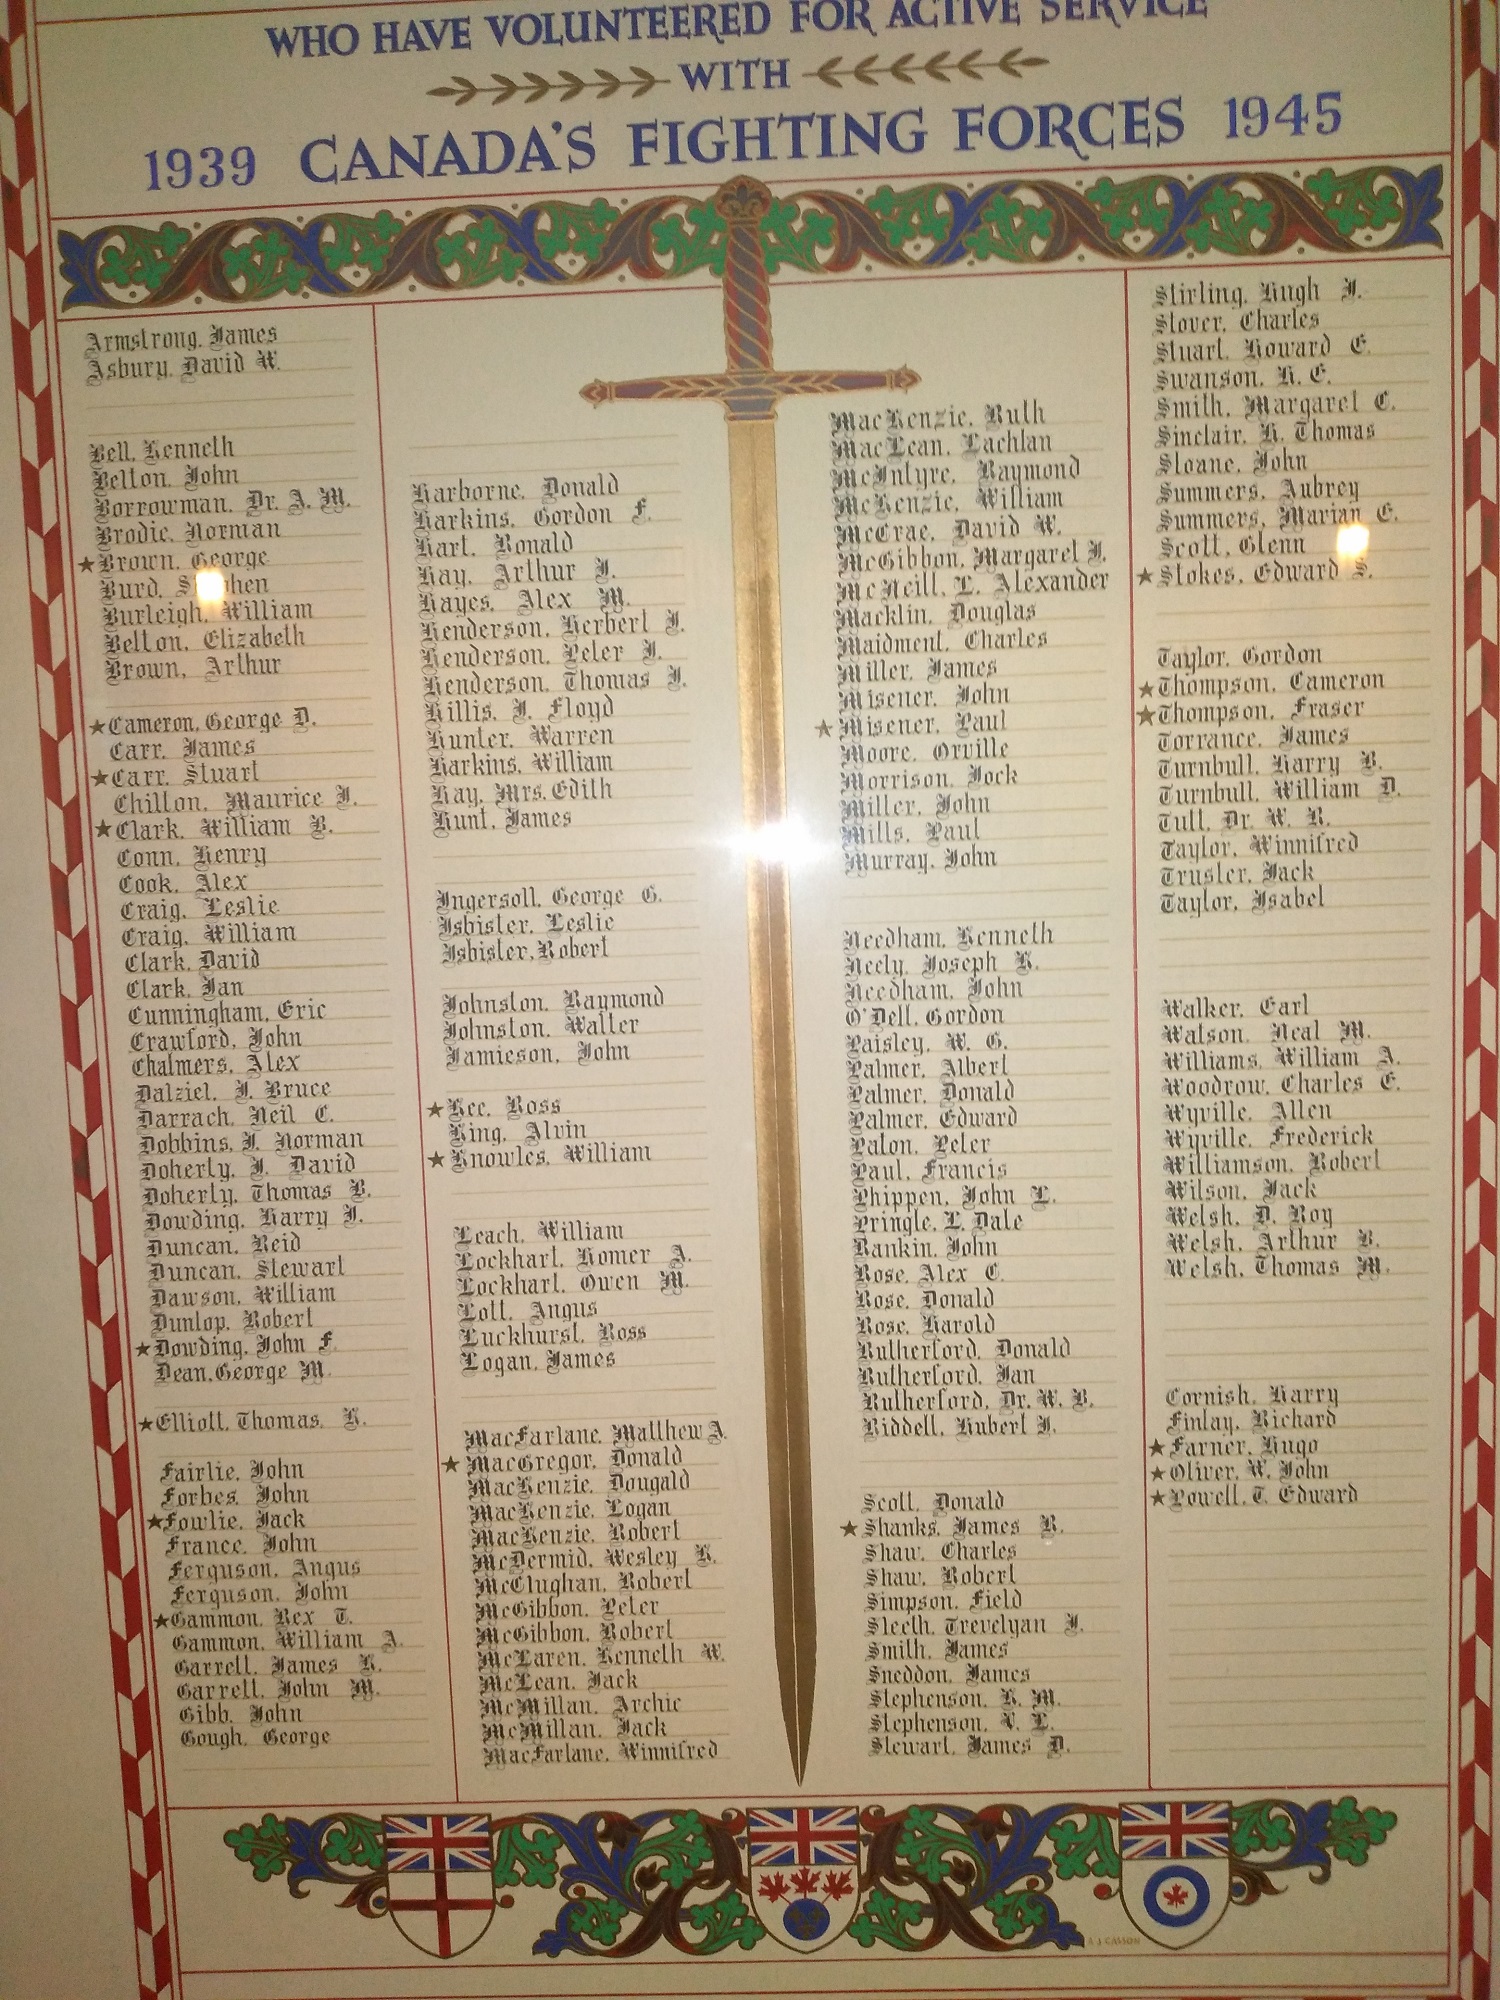 WHO HAVE VOLUNTEERED FOR ACTIVE SERVICE
WITH
1939 CANADA'S FIGHTING FORCES 1945
Armstrong, James
Asbury, David W.
Bell, Kenneth
Belton, John
Borrowman, Dr. A. M.
Brodie, Norman
★Brown, George
Burd, Stephen
Burleigh, William
Belton, Elizabeth
Brown, Arthur
★Cameron, George D.
Carr, James
★Carr, Stuart
Chilton, Maurice J.
★Clark, William B.
Conn, Henry
Cook, Alex
Craig, Leslie
Craig, William
Clark, David
Clark, Ian
Cunningham, Eric
Crawford, John
Chalmers, Alex
Dalziel, J. Bruce
Darrach, Neil C.
Dobbins, J. Norman
Doherty, J. David
Doherty, Thomas B.
Dowding, Harry J.
Duncan, Reid
Duncan, Stewart
Dawson, William
Dunlop, Robert
★Dowding, John F.
Dean, George M.
★Elliott, Thomas. H.
Fairlie, John
Forbes, John
★Fowlie, Jack
France, John
Ferguson, Angus
Ferguson, John
★Gammon, Rex T.
Gammon, William A.
Garrett, James H.
Garrett, John M.
Gibb, John
Gough, George
Harborne, Donald
Harkins, Gordon F.
Hart, Ronald
Hay, Arthur J.
Hayes, Alex M.
Henderson, Herbert J.
Henderson, Peter J.
Henderson, Thomas J.
Hillis, J. Floyd
Hunter, Warren
Harkins, William
Hay, Mrs. Edith
Hunt, James
Ingersoll, George G.
Isbister, Leslie
Isbister, Robert
Johnston, Raymond
Johnston, Walter
Jamieson, John
★Kee, Ross
King, Alvin
★Knowles, William
Leach, William
Lockhart, Homer A.
Lockhart, Owen M.
Lott, Angus
Luckhurst, Ross
Logan, James
MacFarlane, Matthew A.
★MacGregor, Donald
MacKenzie, Dougald
MacKenzie, Logan
MacKenzie, Robert
McDermid, Wesley H.
McClughan, Robert
McGibbon, Peter
McGibbon, Robert
McLaren, Kenneth W.
McLean, Jack
McMillan, Archie
McMillan, Jack
MacFarlane, Winnifred
MacKenzie, Ruth
MacLean, Lachlan
McIntyre, Raymond
McKenzie, William
McCrae, David W.
McGibbon, Margaret J.
McNeill, L. Alexander
Macklin, Douglas
Maidment, Charles
Miller, James
Misener, John
★Misener, Paul
Moore, Orville
Morrison, Jock
Miller, John
Mills, Paul
Murray, John
Needham, Kenneth
Neely, Joseph
Needham, John
O'Dell, Gordon
Paisley, W. G.
Palmer, Albert
Palmer, Donald
Palmer, Edward
Paton, Peter
Paul, Francis
Phippen, John L.
Pringle, L. Dale
Rankin, John
Rose, Alex C.
Rose, Donald
Rose, Harold
Rutherford, Donald
Rutherford, Ian
Rutherford, Dr. W. B.
Riddell, Hubert J.
Scott, Donald
★Shanks, James R.
Shaw, Charles
Shaw, Robert
Simpson, Field
Sleeth, Trevelyan J.
Smith, James
Sneddon, James
Stephenson, H. M.
Stephenson, V. L.
Stewart, James D.
Stirling, Hugh J.
Stover, Charles
Stuart, Howard E.
Swanson, H. E.
Smith, Margaret C.
Sinclair, H. Thomas
Sloane, John
Summers, Aubrey
Summers, Marian E.
Scott, Glenn
★Stokes, Edward S.
Taylor, Gordon
★Thompson, Cameron
★Thompson, Fraser
Torrance, James
Turnbull, Harry B.
Turnbull, William D.
Tutt, Dr. W. R.
Taylor, Winnifred
Trusler, Jack
Taylor, Isabel
Walker, Earl
Watson, Neal M.
Williams, William A.
Woodrow, Charles E.
Wyville, Allen
Wyville, Frederick
Williamson, Robert
Wilson, Jack
Welsh, D. Roy
Welsh, Arthur B.
Welsh, Thomas M.
Cornish, Harry
Finlay, Richard
★Farner, Hugo
★Oliver, W. John
★Powell, T. Edward
A J CASSON